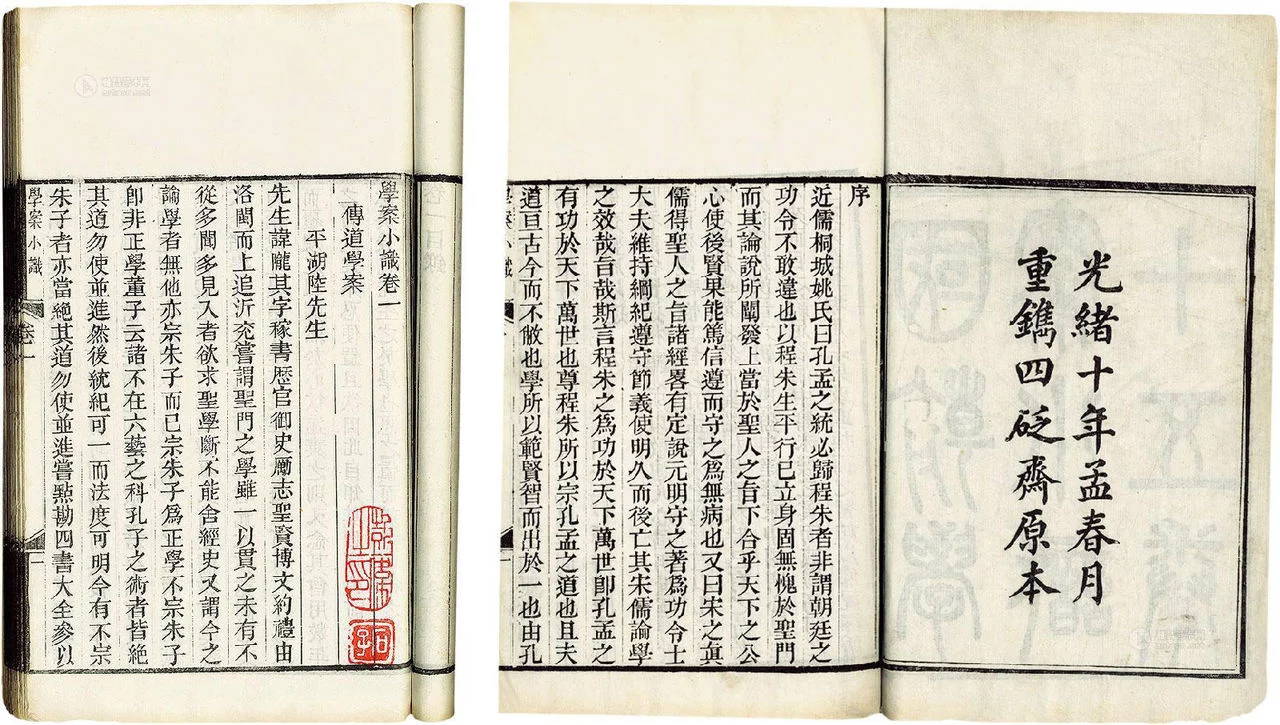 光緒十年孟春月
重鐫四砭齋原本
序
近儒桐城姚氏曰孔孟之統必歸程朱者非謂朝廷之
功令不敢違也以程朱生平行已立身固無愧於聖門
而其論說所闡發上當於聖人之旨下合乎天下之公
心使後賢果能篤信遵而守之爲無病也又曰宋之眞
儒得聖人之言諸經畧有定說元明守之著爲功令士
大夫維持綱紀遵守節義使明久而後亡其朱儒論學
之效哉旨哉斯言程朱之爲功於天下萬世卽孔孟之
有功於天下萬世也尊程朱所以宗孔孟之道也且夫
道亘古今而不敝也學所以範賢智而出於一也由孔
學案小識卷一
傳道學案
平湖陸先生
先生諱隴其字稼書歷官御史厲志聖賢博文約禮由
洛閩而上追沂兖嘗謂聖門之學雖一以貫之未有不
從多聞多見入者欲求聖學斷不能舍經史又謂今之
論學者無他亦宗朱子而已宗朱子爲正學不宗朱子
卽非正學董子云諸不在六藝之科孔子之術者皆絶
其道勿使並進然後統紀可一而法度可明今有不宗
朱子者亦當絶其道勿使並進嘗㸃勘四書大全參以
學案小識
卷一
一